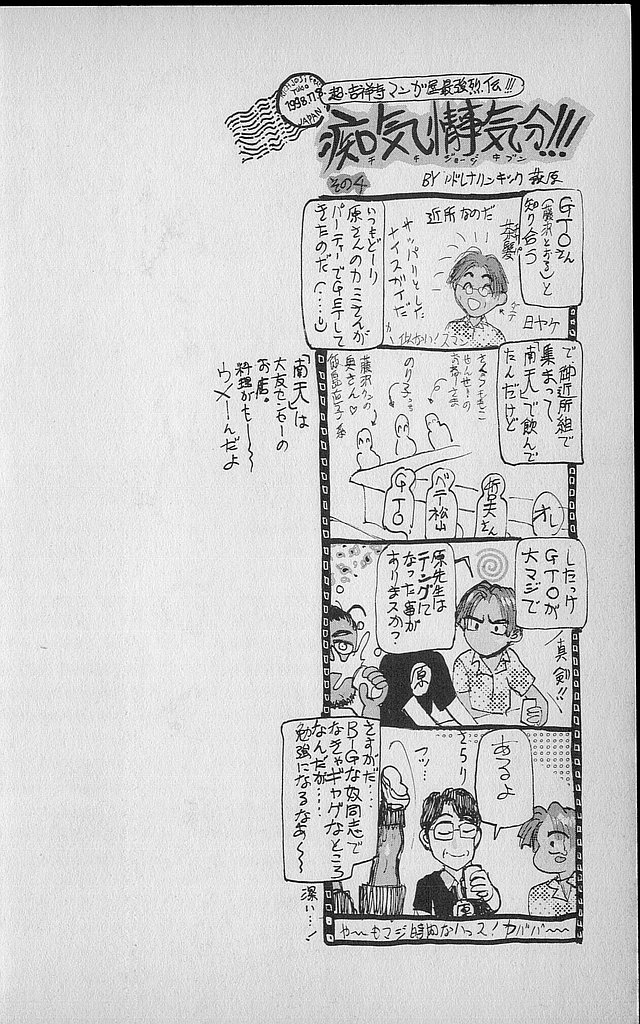 1998.11.8
JAPAN
超・吉祥寺マンガ屋最強烈伝!!!
痴気情事気分!!!
チキジョージキブン
その4
BY ルドルナリンキック 萩原
GTOさん
(藤沢とおる)と
知り合う
茶髪
近所なのだ
サッパリとした
ナイスガイだ
日ヤケ
似てない!スマン
いつもどーり
原さんのカミさんが
パーティーでGETして
きたのだ(……も)
で、御近所組で
集まって、
「南天」で飲んで
たんだけど
さくらももこ
せんせーの
おねーさま
のり子っち
藤沢クンの
奥さん♡
飯島直子系
オレ
哲夫さん
ベテ松山
GTO
「南天」は
大友センセーの
お店。
料理がもー〜
ウメーんだよ
したっけ
GTOが
大マジで
真剣!!
原先生は
テングに
なった事が
ありますか?
原
あるよ
さらり
フッ…
原
さすがだ…
BIGな奴同志で
なきゃギャグなところ
なんだが……
勉強になるなあ〜〜
深い…!
や〜もマジ時間ないっス!ガババ〜〜